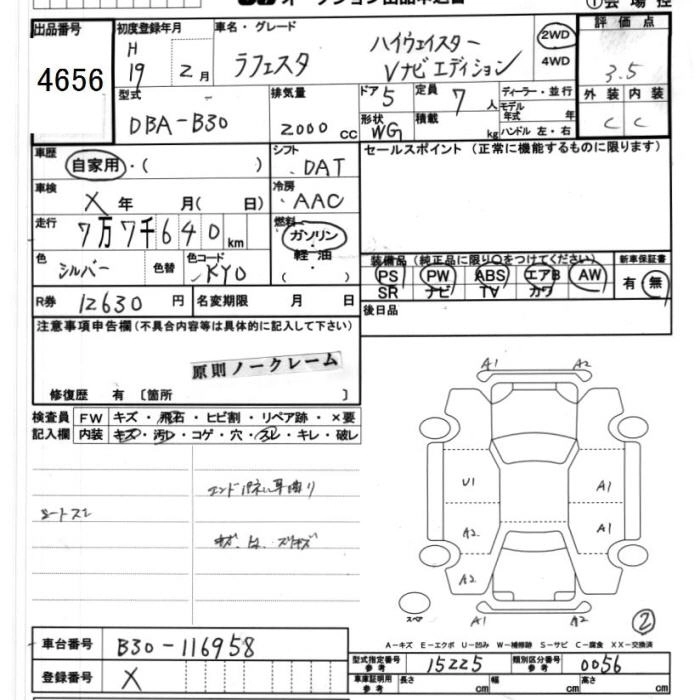 オークション出品申込書
①会場控
出品番号 初度登録年月 車名・グレード 評価点
4656 H 19 2月 ラフェスタ ハイウェイスター Vナビエディション 2WD 4WD 3.5
型式 排気量 ドア 5 定員 7人 ディーラー・並行 外装 内装
DBA-B30 2000 cc 形状 WG 積載 kg モデル年式 年 C C
ハンドル 左・右
車歴 自家用・( ) シフト DAT セールスポイント (正常に機能するものに限ります)
車検 X 年 月( 日) 冷房 AAC
走行 7万7千640 km 燃料 ガソリン・軽油・( )
色 シルバー 色替 色コード KY0 装備品(純正品に限り○をつけてください) 新車保証書
PS PW ABS エアB AW 有・無
SR ナビ TV カワ
R券 12630 円 名変期限 月 日 後日品
注意事項申告欄(不具合内容等は具体的に記入して下さい)
原則ノークレーム
修復歴 有 〔箇所 〕
検査員 FW キズ・飛石・ヒビ割・リペア跡・×要
記入欄 内装 キズ・汚レ・コゲ・穴・スレ・キレ・破レ
A1 A2
U1 A1
A2 A1
A2
スペア A1 A2 ②
A-キズ E-エクボ U-凹み W-補修跡 S-サビ C-腐食 XX-交換済
車台番号 B30-116958 型式指定番号 参考 15225 類別区分番号 参考 0056
登録番号 X 車庫証明用 参考 長さ cm 幅 cm 高さ cm